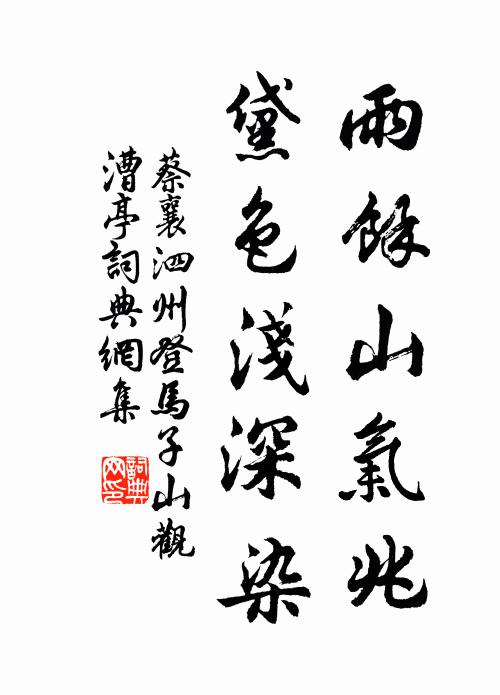 雨餘山氣兆
黛色淺深染
蔡襄泗州登馬子山觀
漕亭詞典網集
詞典
网印